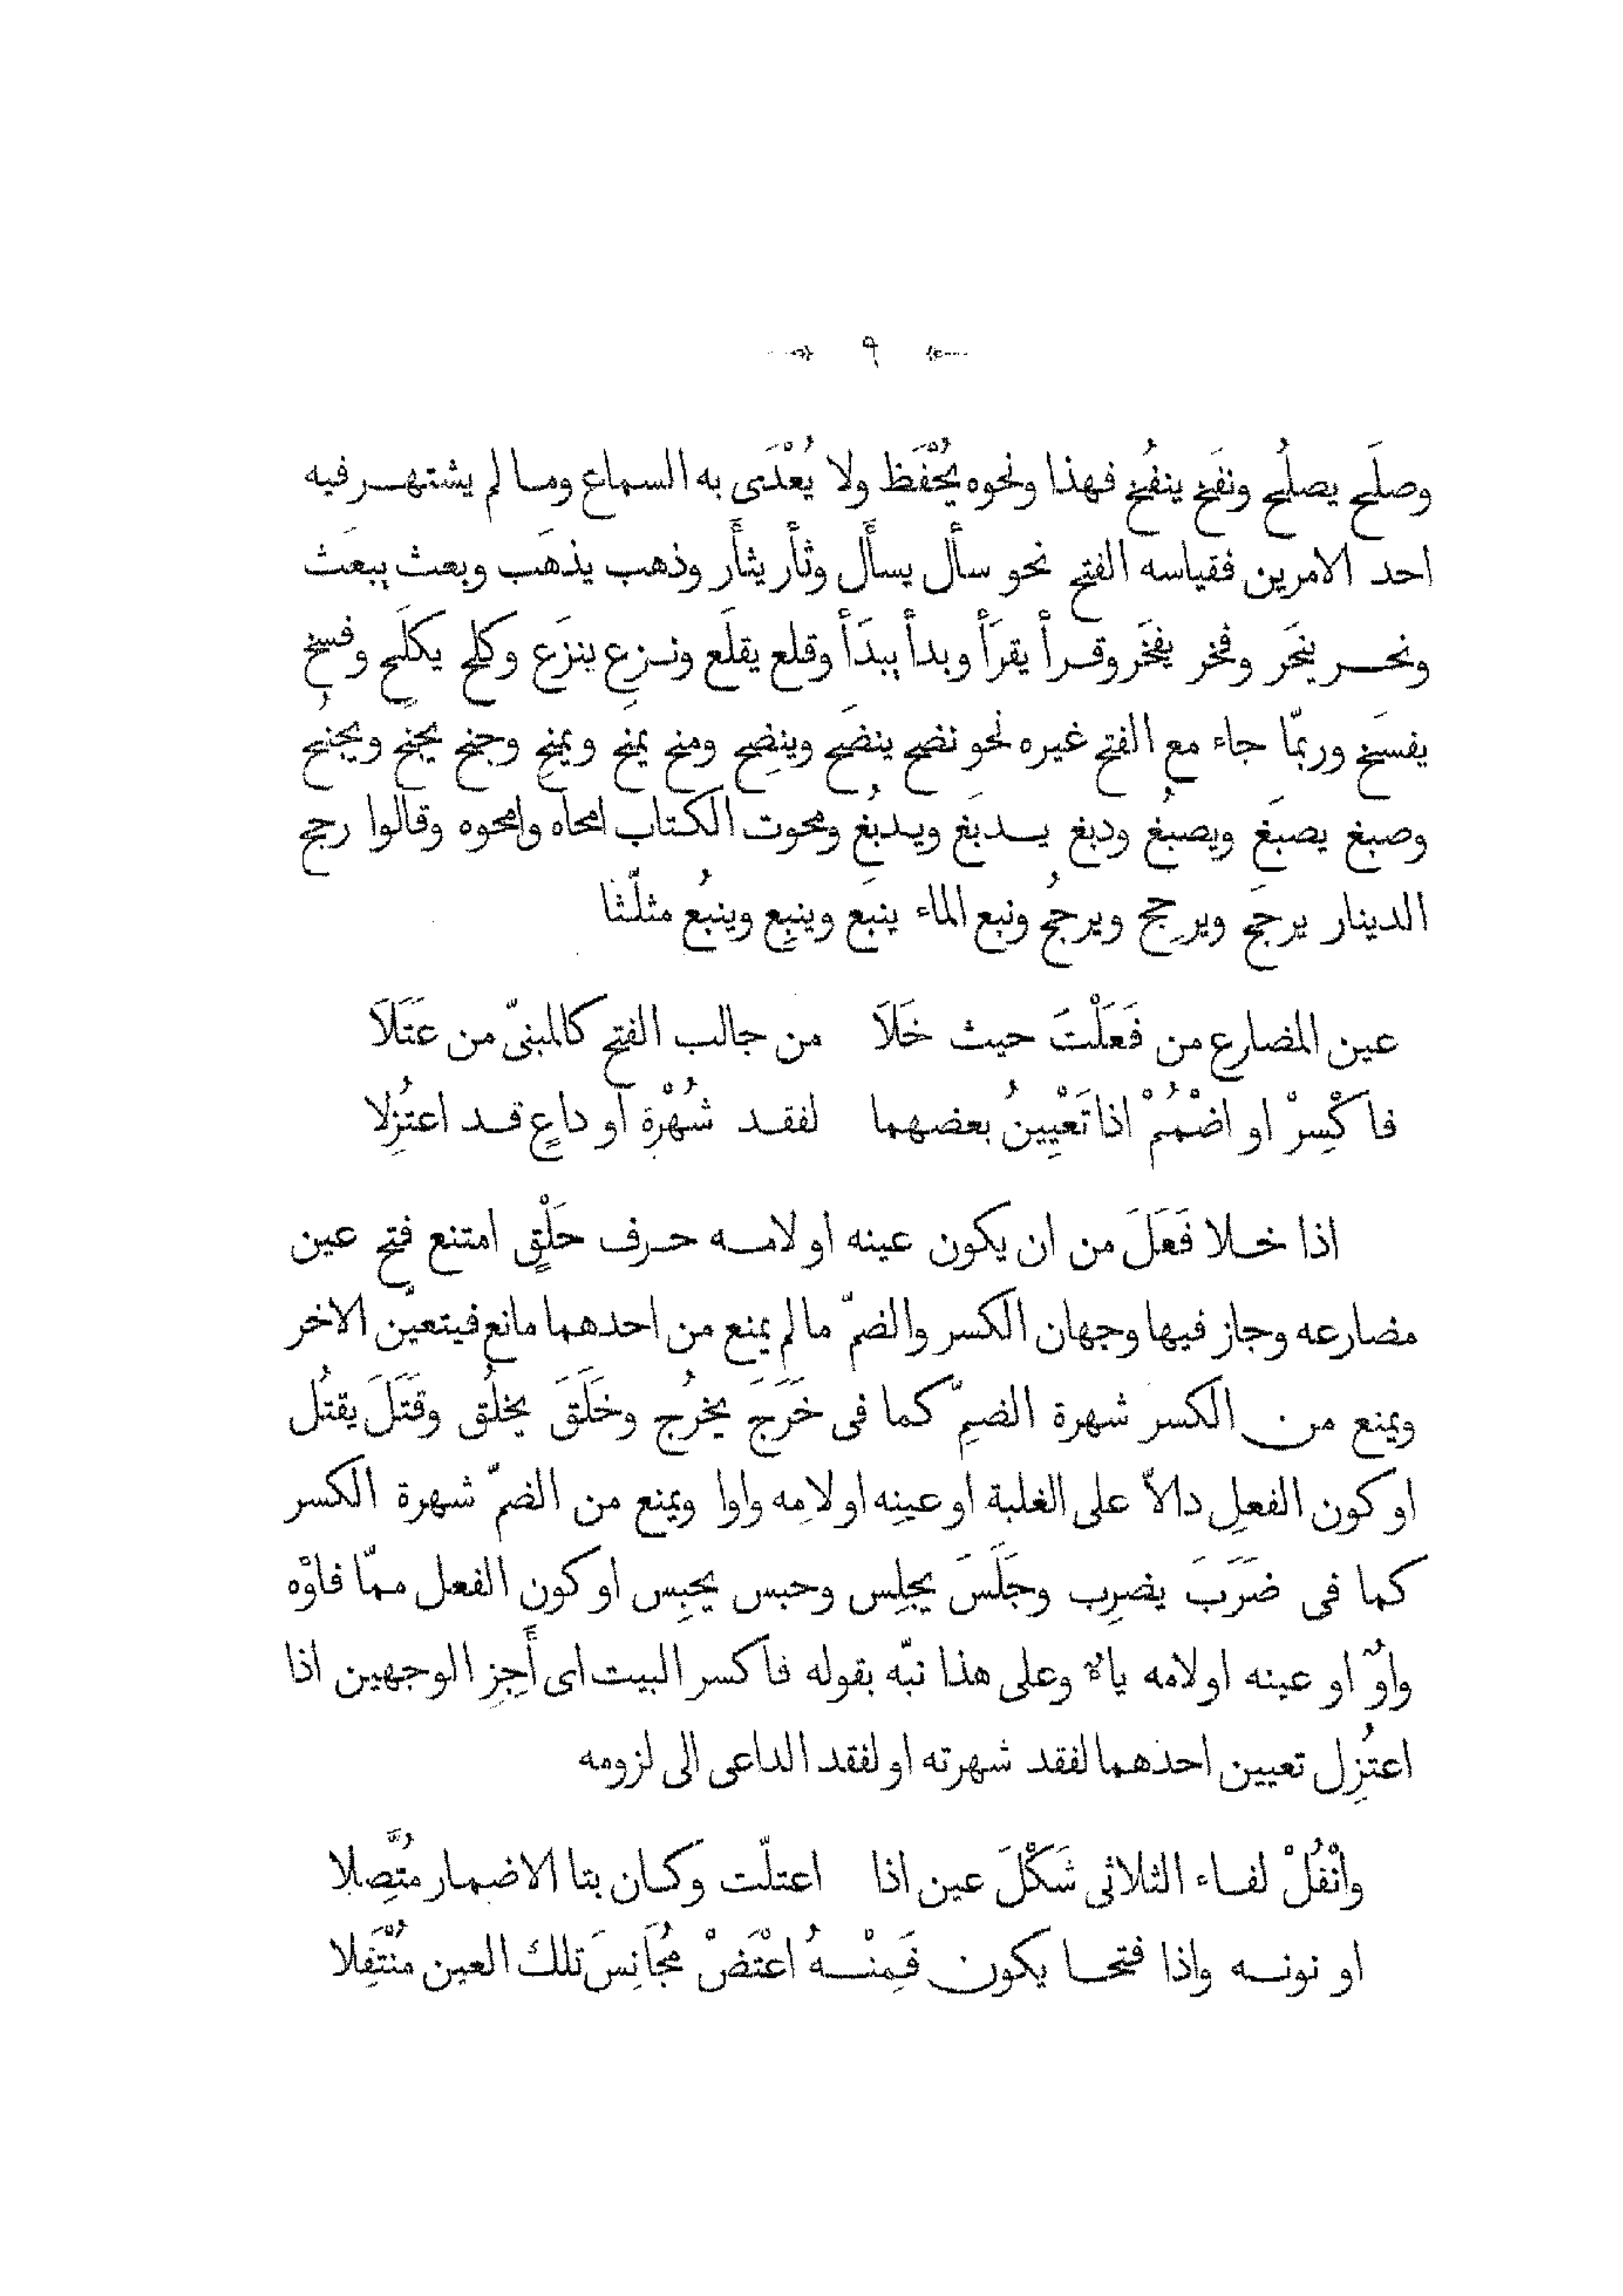 ٩
وصلَح يصلُح ونفَخ ينفُخ فهذا ونحوه يُحْفَظ ولا يُعْدَى به السماع وما لم يشتهر فيه
احد الامرين فقياسه الفتح نحو سأل يسأَل وثأر يثأَر وذهب يذهَب وبعث يبعَث
ونحر ينحَر وفخر يفخَر وقرأ يقرَأ وبدأ يبدَأ وقلع يقلَع ونزع ينزَع وكلح يكلَح وفسخ
يفسَخ وربمّا جاء مع الفتح غيره نحو نضح ينضَح وينضِح ومنح يمنَح ويمنِح وجنح يجنَح ويجنُح
وصبغ يصبَغ ويصبُغ ودبغ يدبَغ ويدبُغ ومحوت الكتاب امحاه وامحوه وقالوا رجح
الدينار يرجَح ويرجِح ويرجُح ونبع الماء ينبَع وينبِع وينبُع مثلّثا
عين المضارع من فَعَلْتَ حيث خَلَاَ من جالب الفتح كالمبنىّ من عَتَلَاَ
فاكْسِرْ او اضْمُمْ اذا تَعْيِينُ بعضهما لفقد شُهْرَةٍ او داعٍ قد اعتُزِلا
اذا خلا فَعَلَ من ان يكون عينه او لامه حرف حَلْقٍ امتنع فتح عين
مضارعه وجاز فيها وجهان الكسر والضمّ ما لم يمنع من احدهما مانع فيتعيّن الاخر
ويمنع من الكسر شهرة الضمِّ كما فى خَرَجَ يخرُج وخَلَقَ يخلُق وقَتَلَ يقتُل
او كون الفعلِ دالاّ على الغلبة او عينِه او لامِه واوا ويمنع من الضمّ شهرة الكسر
كما فى ضَرَبَ يضرِب وجَلَسَ يجلِس وحبس يحبِس او كون الفعل ممّا فاؤه
واوٌ او عينه او لامه ياءٌ وعلى هذا نبّه بقوله فاكسر البيت اى أَجِزِ الوجهين اذا
اعتُزِل تعيين احدهما لفقد شهرته او لفقد الداعى الى لزومه
وانْقُلْ لفاء الثلاثى شَكْلَ عين اذا اعتلّت وكان بتا الاضمار مُتَّصِلا
او نونه واذا فتحا يكون فَمِنْهُ اعْتَضْ مُجَانِسَ تلك العين مُنْتَقِلا